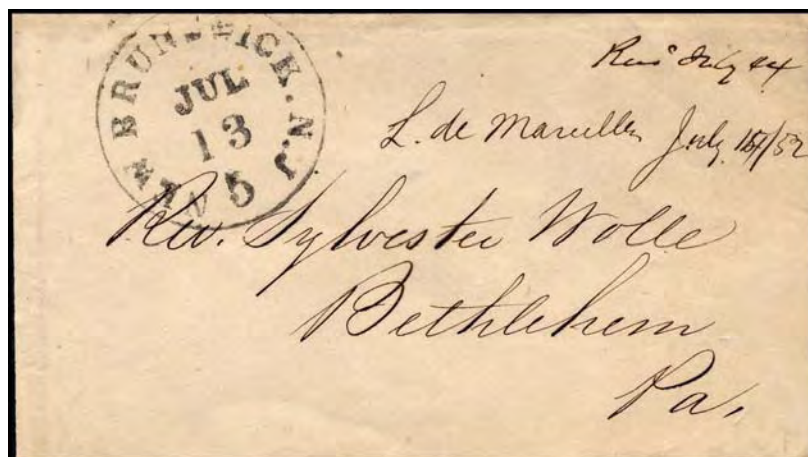 NEW BRUNSWICK. N.J.
JUL
13
5
July
L. de Marcellen July
Rev. Sylvester Wolle
Bethlehem
Pa.